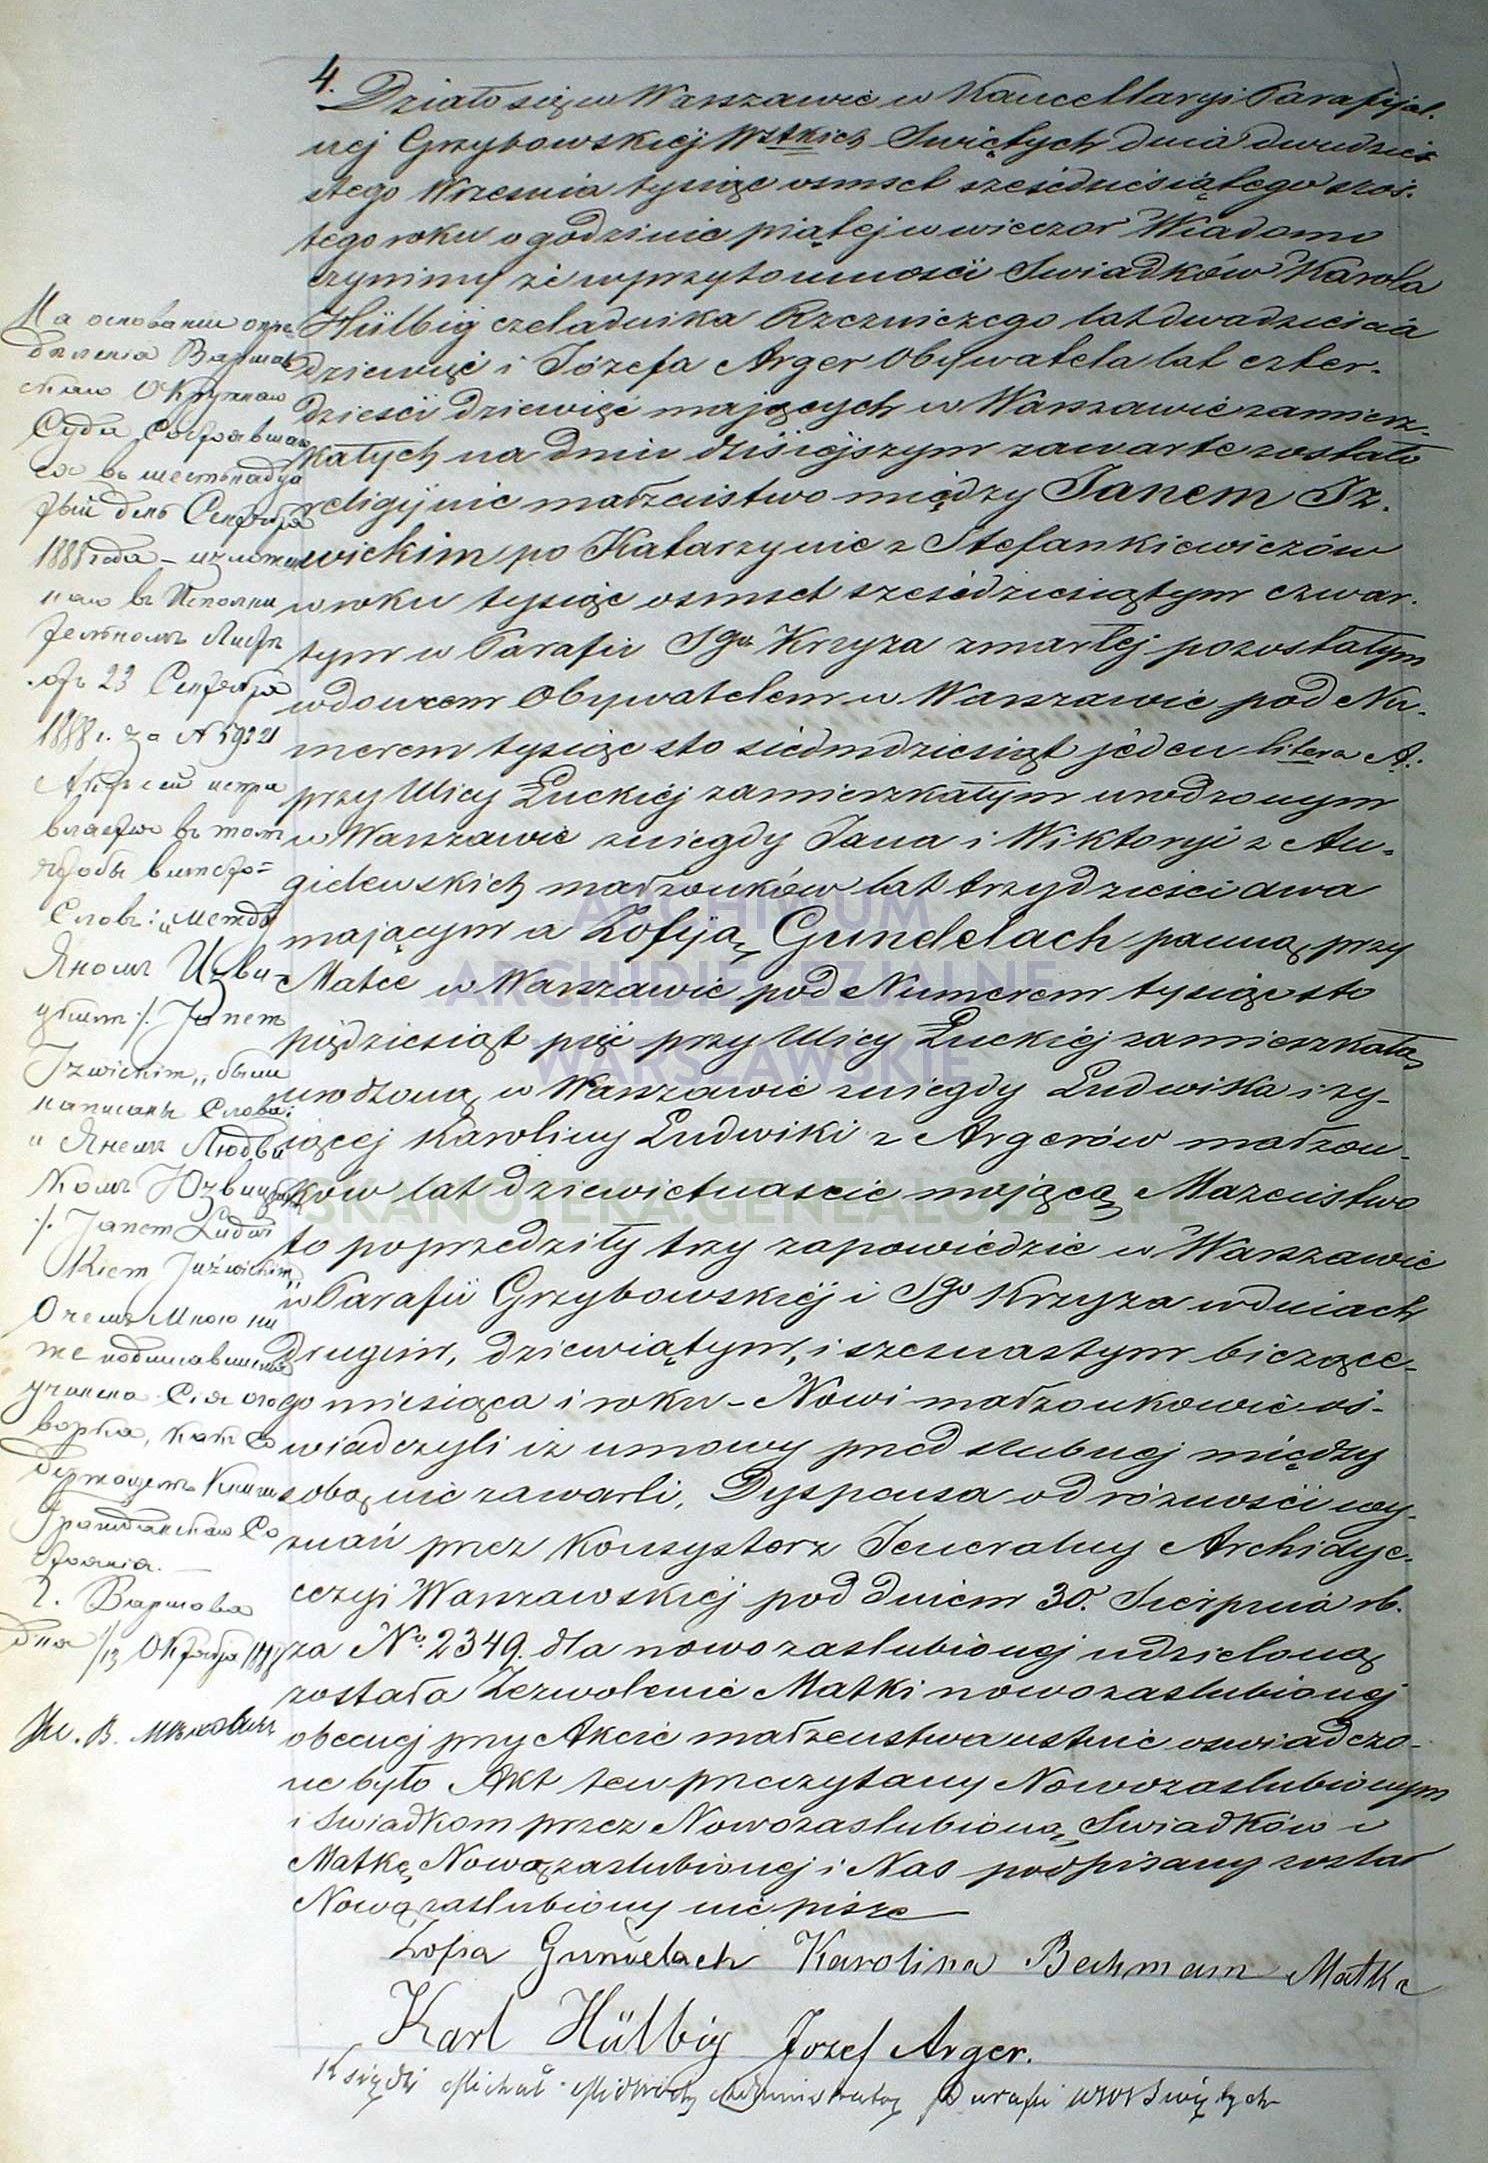 4.
Działo się w Warszawie w Kancellaryi Parafijal-
nej Grzybowskiej Wstkich Swiętych dnia dwudzie-
stego Wrzesnia tysiąc osmset sześćdziesiątego szós-
tego roku o godzinie piątej w wieczor Wiadomo
czynimy że w przytomnosci Swiadków Karola
Hülbig czeladnika Rzezniczego lat dwadziescia
dziewięć i Józefa Arger Obywatela lat czter-
dziesci dziewięć mających w Warszawie zamiesz-
kałych na dniu dzisiejszym zawarte zostało
religijnie małżeństwo między Janem Iz-
wickim po Katarzynie z Stefankiewiczów
w roku tysiąc osmset sześćdziesiątym czwar-
tym w Parafii Sgo Krzyża zmarłej pozostałym
wdowcem Obywatelem w Warszawie pod Nu-
merem tysiąc sto siedmdziesiąt jeden litera A.
przy Ulicy Łuckiej zamieszkałym urodzonym
w Warszawie z niegdy Jana i Wiktoryi z An-
gielewskich małżonków lat trzydziesci dwa
mającym a Zofiją Gundelach panną przy
Matce w Warszawie pod Numerem tysiąc sto
pięćdziesiąt pięć przy Ulicy Łuckiej zamieszkałą
urodzoną w Warszawie z niegdy Ludwika i ży-
jącej Karoliny Ludwiki z Argerów małżon-
ków lat dziewiętnascie mającą Mażeństwo
to poprzedziły trzy zapowiedzie w Warszawie
w Parafii Grzybowskiej i Sgo Krzyża w dniach
drugim, dziewiątym, i szesnastym bieżące-
go miesiąca i roku – Nowi małżonkowie oś-
wiadczyli iż umowy przed slubnej między
sobą nie zawarli, Dyspensa od różności wy-
znań przez Konsystorz Jeneralny Archidye-
cezyi Warszawskiej pod dniem 30. Sierpnia rb.
za No. 2349. dla nowozaslubionej udzieloną
została Zezwolenie Matki nowozaslubionej
obecnej przy Akcie małżenstwa ustnie oswiadczo-
ne było Akt ten przeczytany Nowozaslubionym
i Swiadkom przez Nowozaslubioną, Swiadków i
Matkę Nowozaslubionej i Nas podpisany został
Nowozaslubiony nie pisze
Zofia Gundelach Karolina Bechmann Matka
Karl Hülbig Jozef Arger.
Ksiądz Michał Administrator Parafii WW Swiętych
На основании опре-
деленія Варшав
скаго Окружнаго
Суда, состоявшаго
ся въ шестьнадца
тый день Сентября
1888 года – изложен
наго въ Исполни
тельномъ Листѣ
отъ 23 Сентября
1888 г. за N 59321
Актъ сей испра
вляется въ томъ
чтобы вместо=
словъ: „между
Яномъ Изви-
цкимъ /. Janem
Izwickim„ были
написаны слова:
„ Яномъ Людви
комъ Юзвицкимъ
/. Janem Ludwi
kiem Juźwickim„
О чемъ мною ни
же подписавшимся
учинена сія ого
ворка, какъ со
держащемъ Книги
Гражданскаго Со
стоянія.
г. Варшава
дня 1/13 Октября 1888